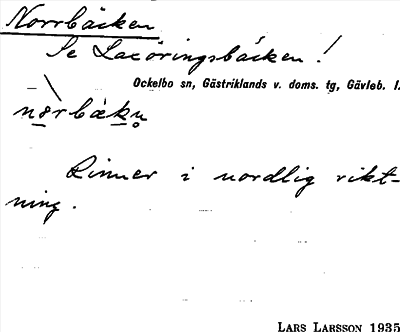 Norrbäcken
Se Laxöringsbäcken!
Ockelbo sn, Gästriklands v. doms. tg, Gävleb. l.
Rinner i nordlig rikt-
ning.
LARS LARSSON 1935